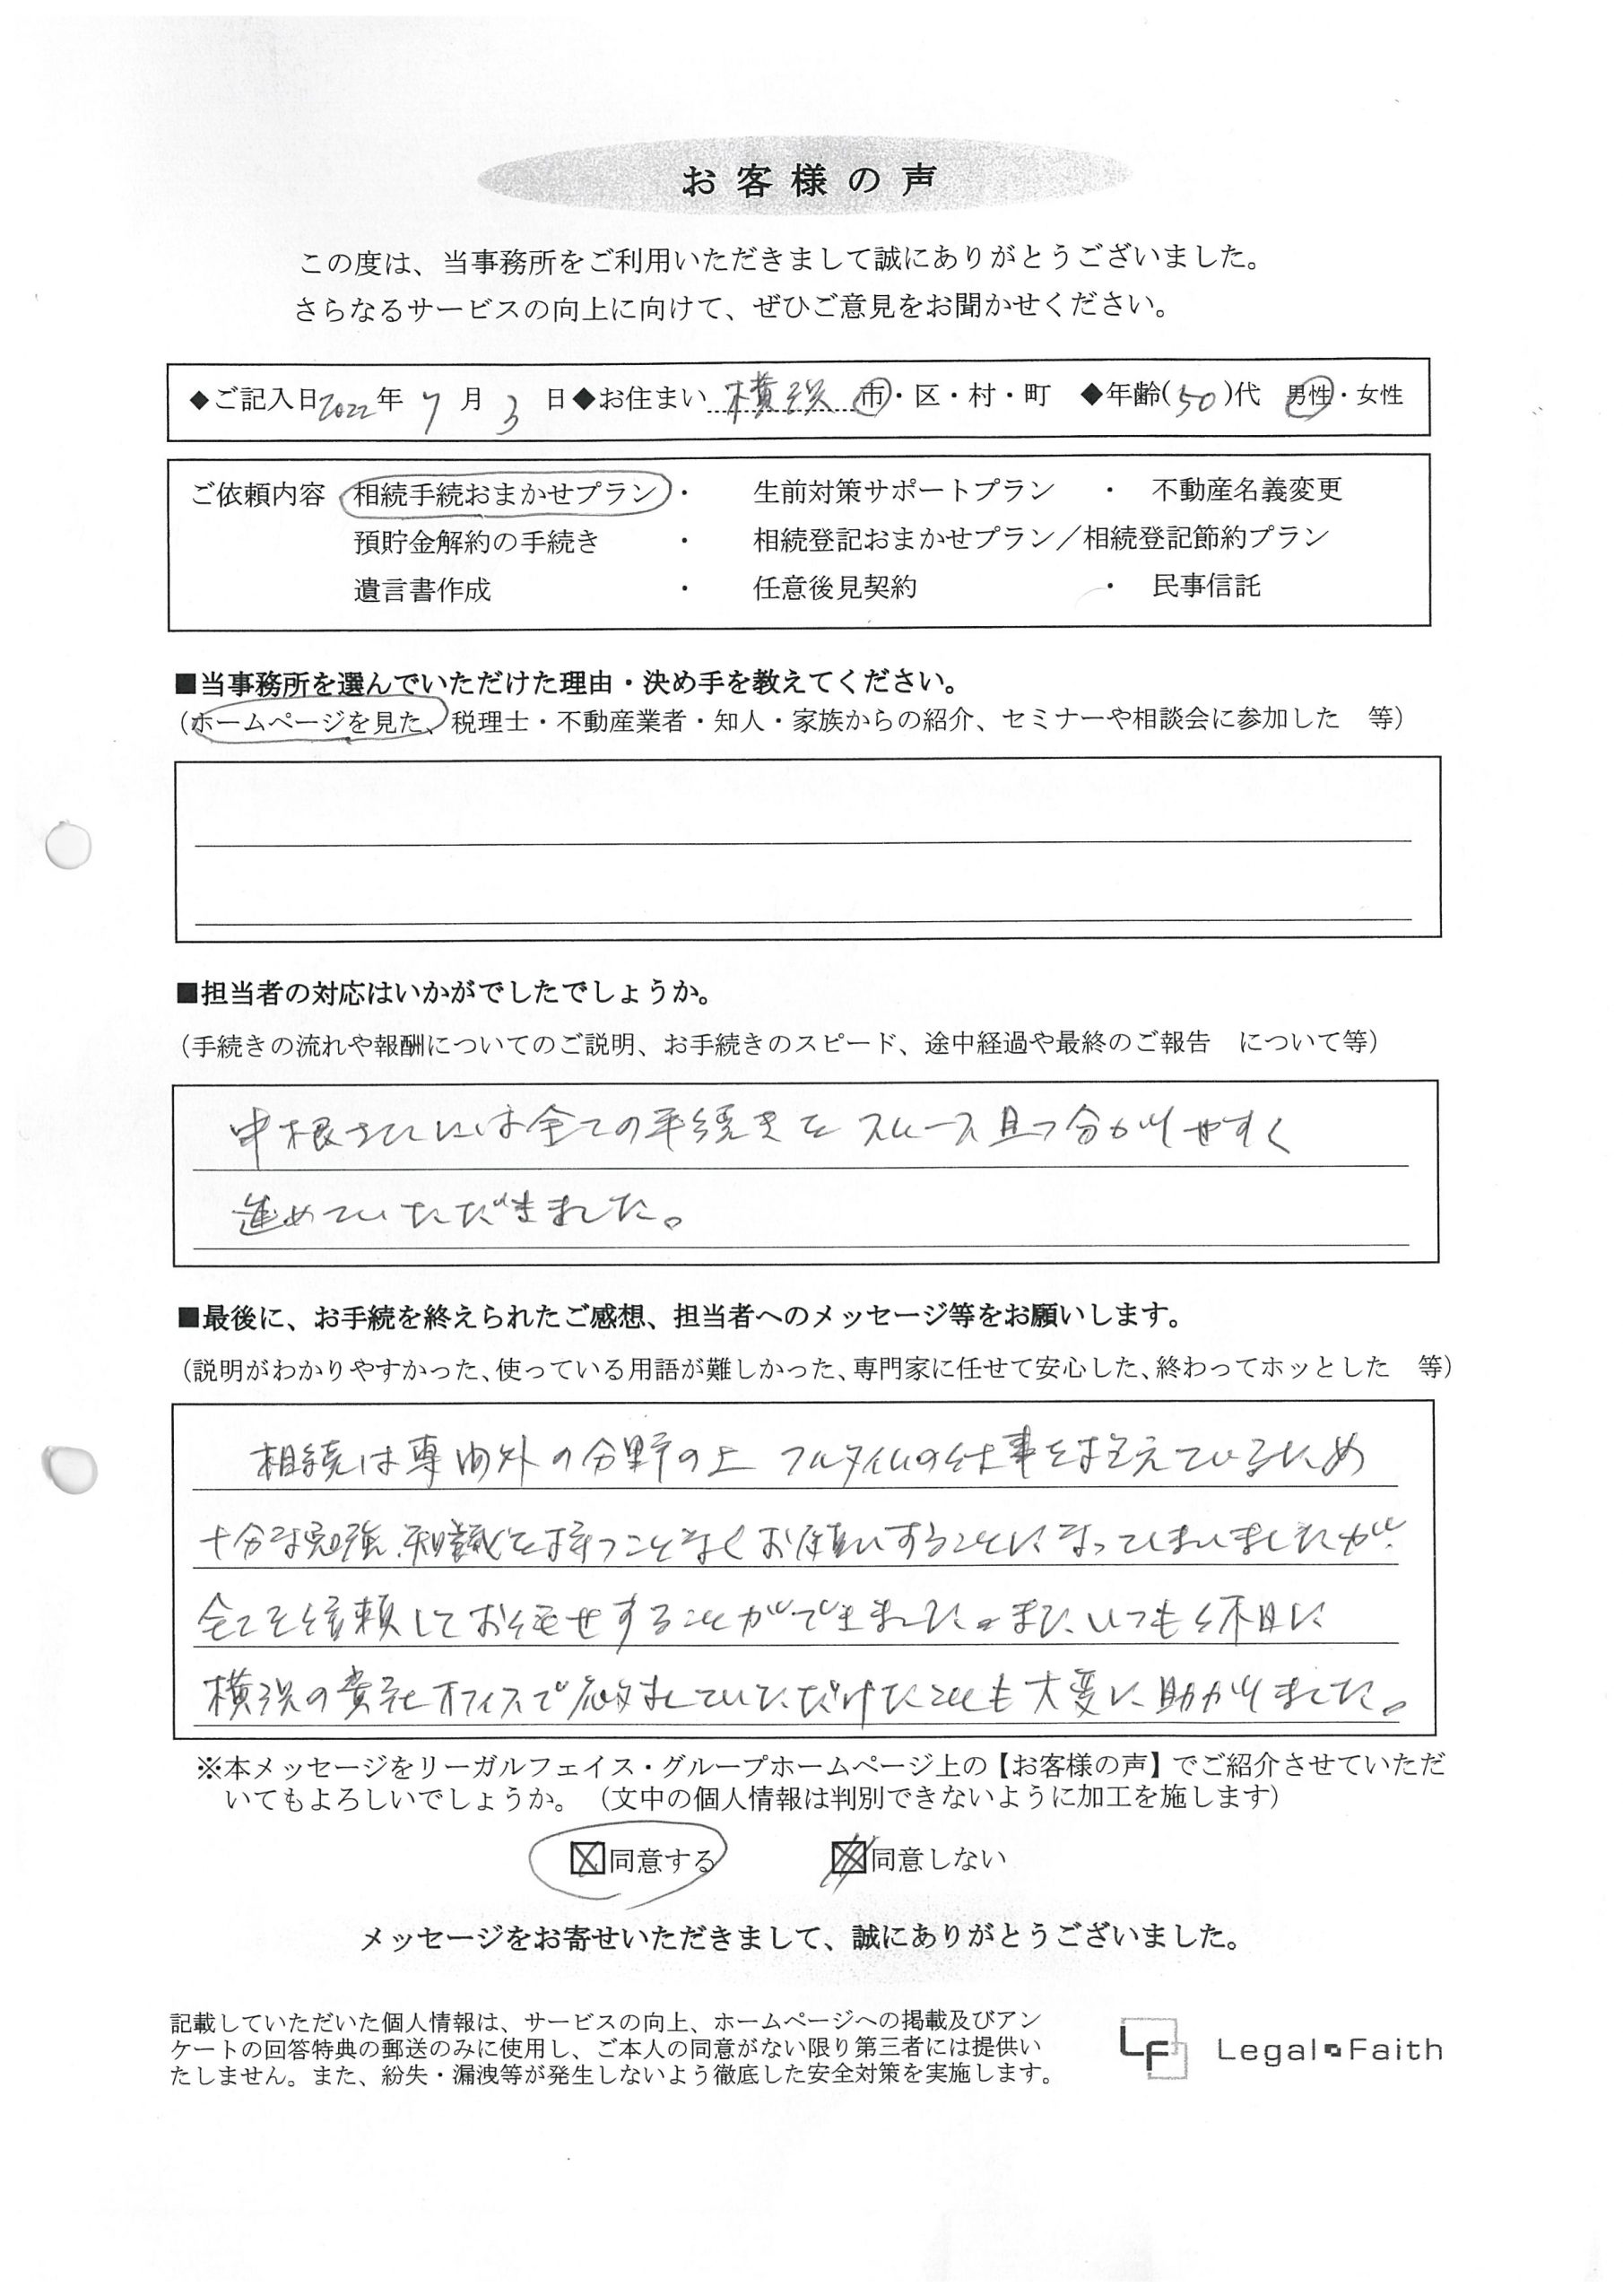 お客様の声
この度は、当事務所をご利用いただきまして誠にありがとうございました。
さらなるサービスの向上に向けて、ぜひご意見をお聞かせください。
◆ご記入日2022年 7月 3日◆お住まい 横浜 市・区・村・町 ◆年齢(50)代 男性・女性
ご依頼内容 相続手続おまかせプラン・ 生前対策サポートプラン ・ 不動産名義変更
預貯金解約の手続き ・ 相続登記おまかせプラン／相続登記節約プラン
遺言書作成 ・ 任意後見契約 ・ 民事信託
■当事務所を選んでいただけた理由・決め手を教えてください。
（ホームページを見た、税理士・不動産業者・知人・家族からの紹介、セミナーや相談会に参加した 等）
■担当者の対応はいかがでしたでしょうか。
（手続きの流れや報酬についてのご説明、お手続きのスピード、途中経過や最終のご報告 について等）
中根さんには全ての手続きを スムース且つ分かりやすく
進めていただきました。
■最後に、お手続を終えられたご感想、担当者へのメッセージ等をお願いします。
（説明がわかりやすかった、使っている用語が難しかった、専門家に任せて安心した、終わってホッとした 等）
相続は専門外の分野の上 フルタイムの仕事を抱えているため
十分な勉強、知識を持つことなくお願いすることになってしまいましたが、
全てを信頼してお任せすることができました。また、いつも休日に
横浜の貴社オフィスで対応していただけたことも大変に助かりました。
※本メッセージをリーガルフェイス・グループホームページ上の【お客様の声】でご紹介させていただ
いてもよろしいでしょうか。（文中の個人情報は判別できないように加工を施します）
☒同意する ☒同意しない
メッセージをお寄せいただきまして、誠にありがとうございました。
記載していただいた個人情報は、サービスの向上、ホームページへの掲載及びアン
ケートの回答特典の郵送のみに使用し、ご本人の同意がない限り第三者には提供い
たしません。また、紛失・漏洩等が発生しないよう徹底した安全対策を実施します。
LF Legal Faith